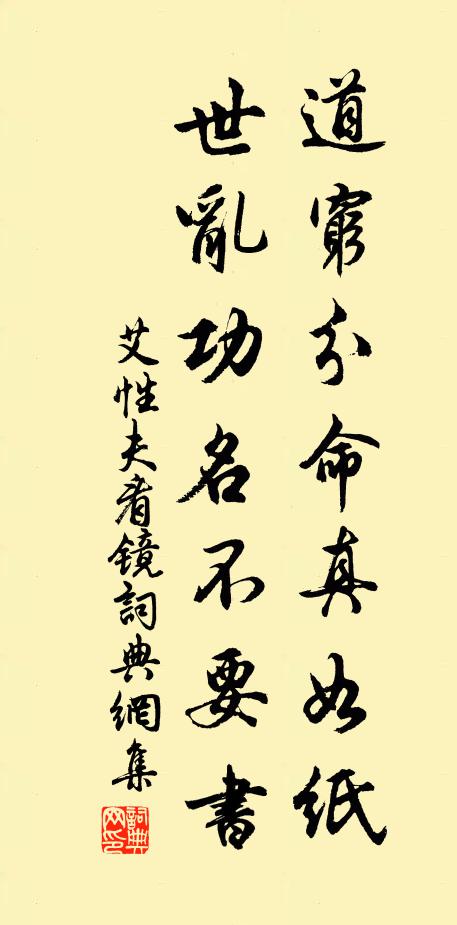 道窮分命真如紙
世亂功名不要書
艾性夫看鏡詞典網集
詞典網印